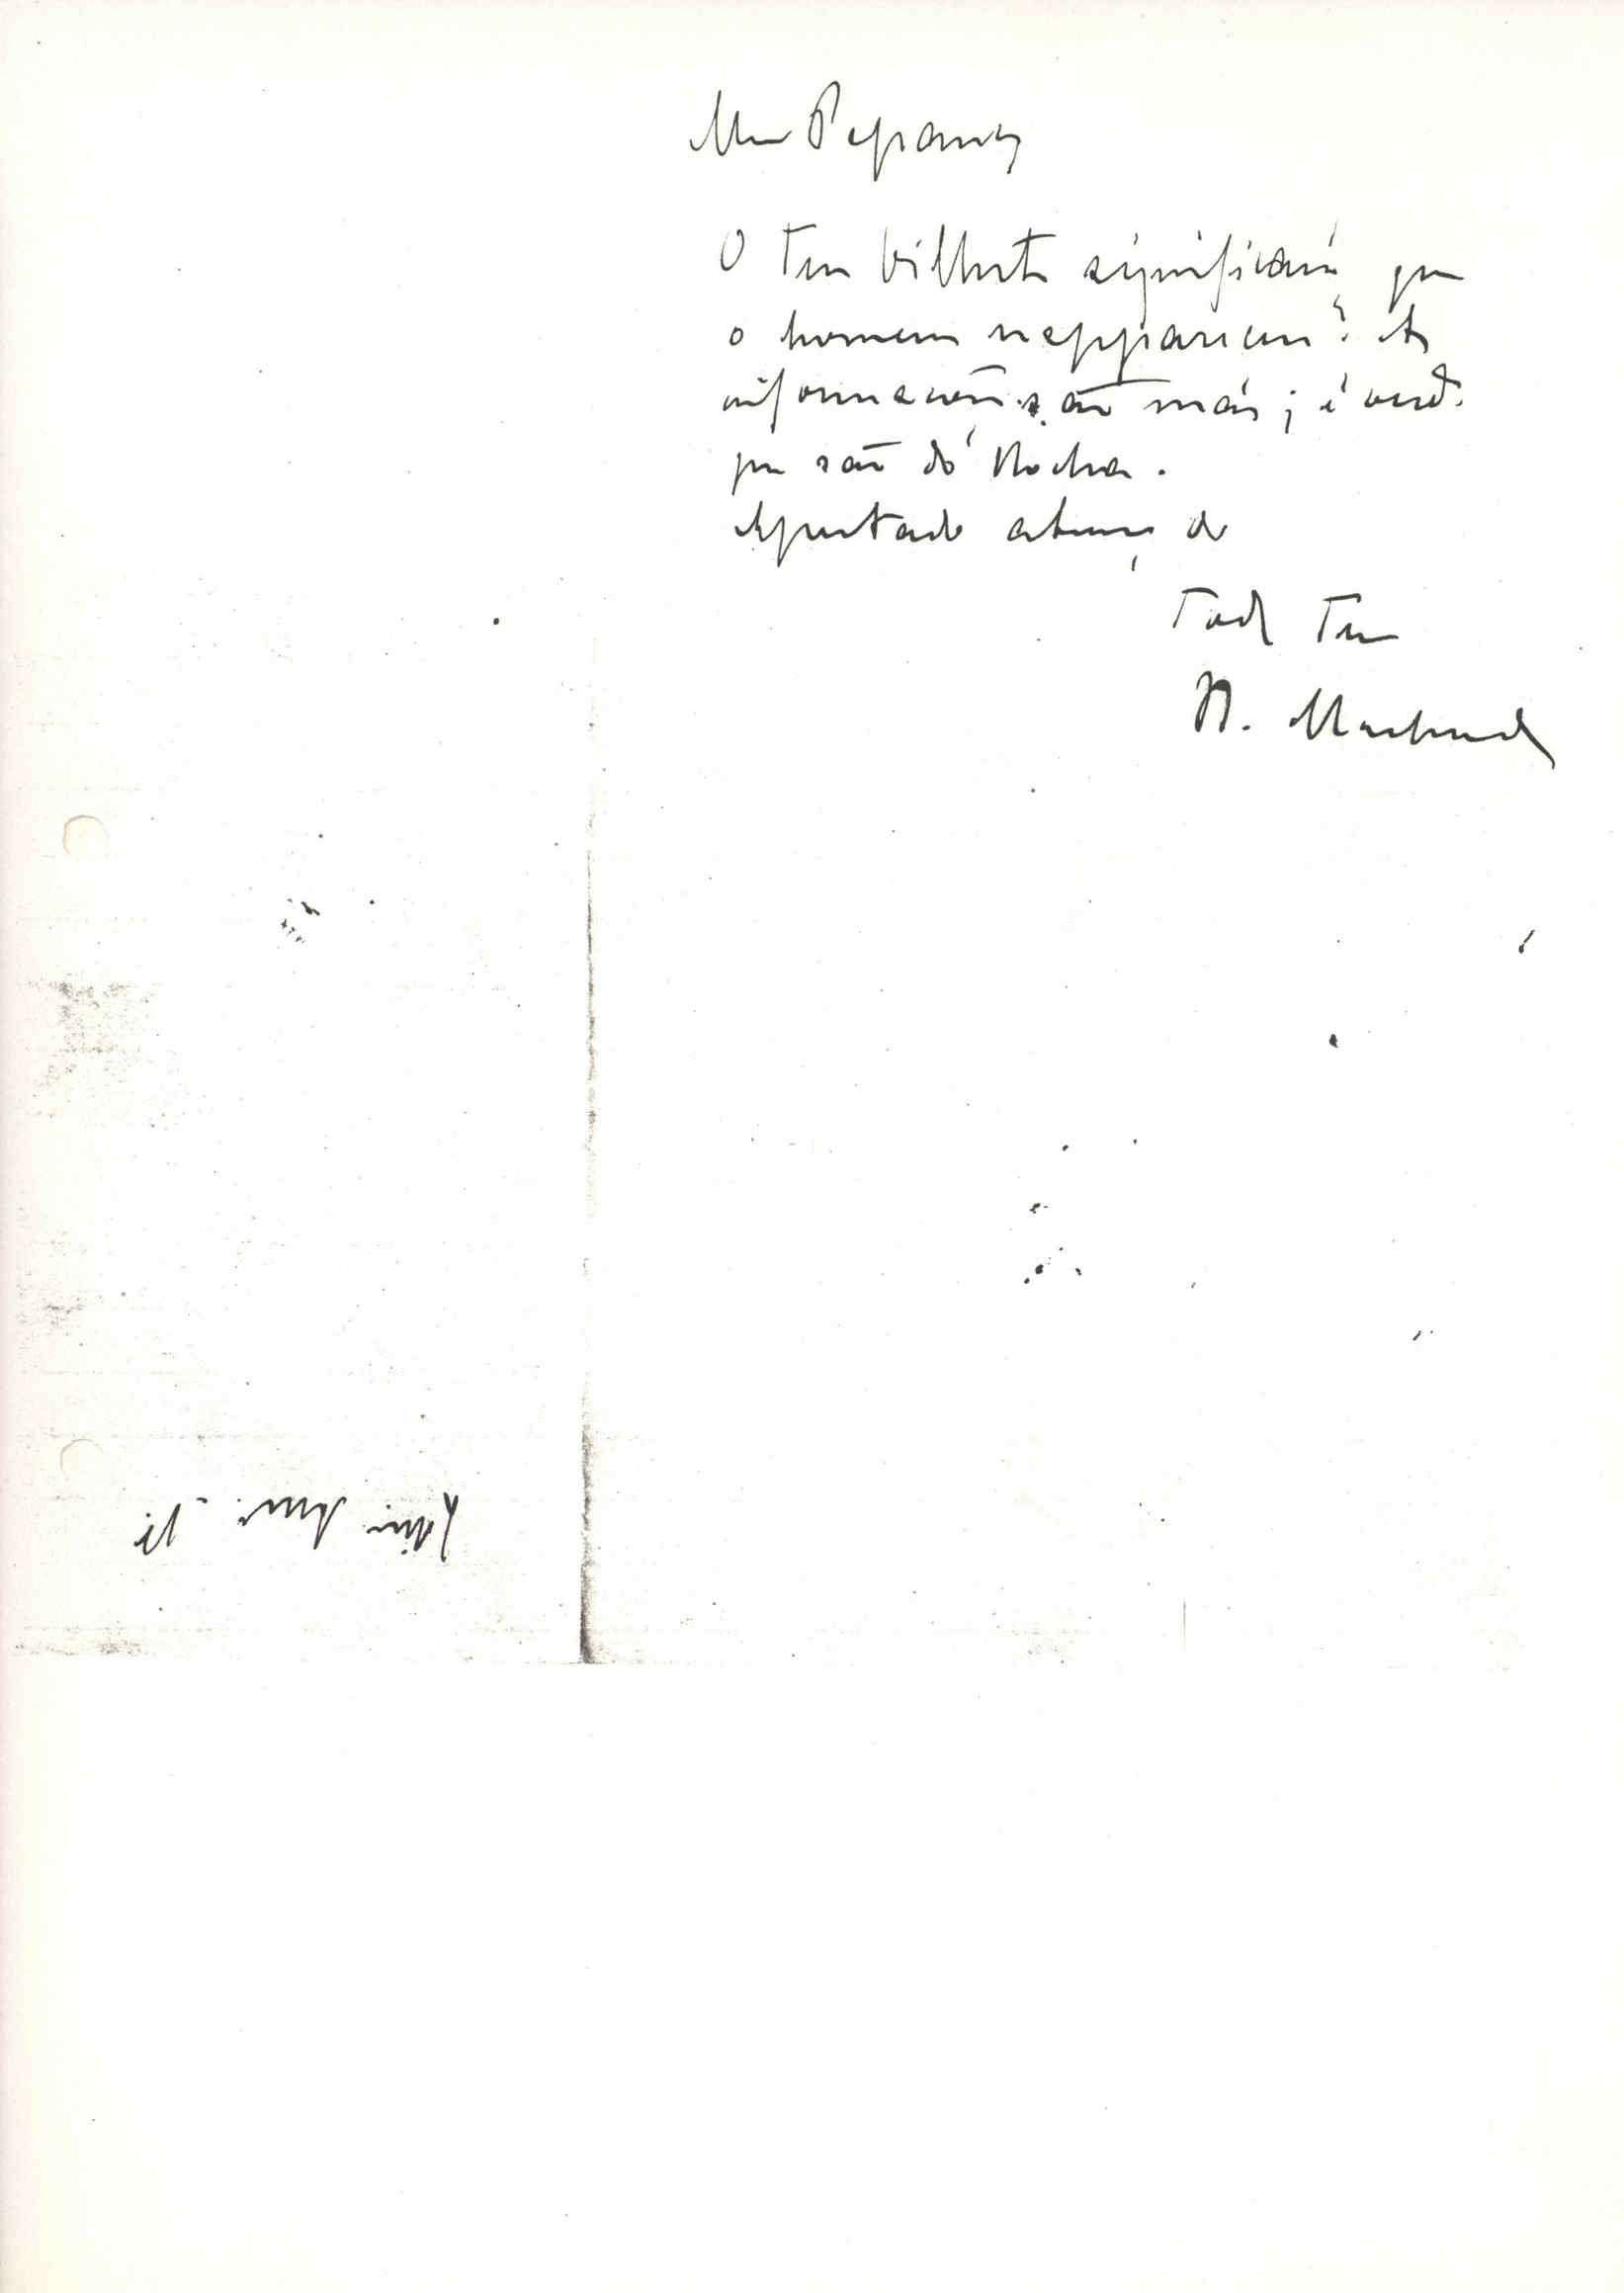 Meu
O teu bilhete significará que
o homem reappareceu? As
informações são más; é verd.
que são do Rocha.
Apertado abraço do
Todo Teu
B. Machado